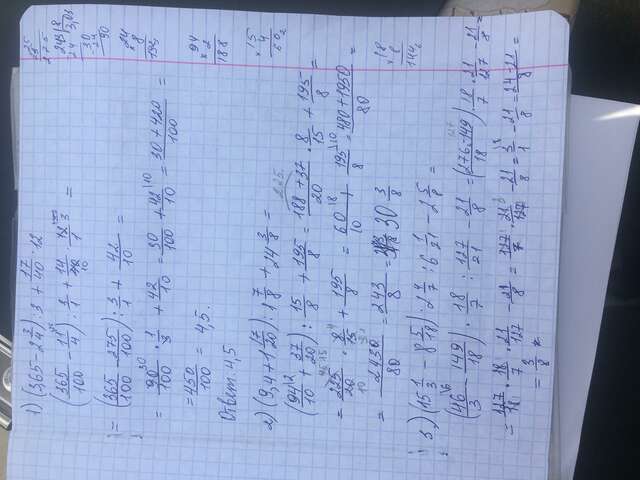 1) (3,65 - 2 3/4) : 3 + 17/40 · 12
(365/100 - 11/4) : 3/1 +
= (365/100 - 275/100) : 3/1 + 42/10 =
= 90/100 · 1/3 + 42/10 = 30/100 + 42/10 = 30 + 420/100 =
= 450/100 = 4,5.
Ответ: 4,5
2) (9,4 + 1 17/20) : 1 7/8 + 24 3/8 =
(94/10 + 37/20) : 15/8 + 195/8 = 188 + 37/20 · 8/15 + 195/8 =
= 225/20 · 8/15 + 195/8 = 60/10 + 195/8 = 480 + 1950/80 =
= 2430/80 = 243/8 = 30 3/8
3) (15 1/3 - 8 5/18) · 2 4/7 : 6 1/21 - 2 5/8 =
(46/3 - 149/18) · 18/7 : 127/21 - 21/8 = (276-149/18) · 18/7 · 21/127 - 21/8 =
= 127/18 · 18/7 · 21/127 - 21/8 = 127/7 · 21/127 - 21/8 = 3/1 - 21/8 = 24-21/8 =
= 3/8